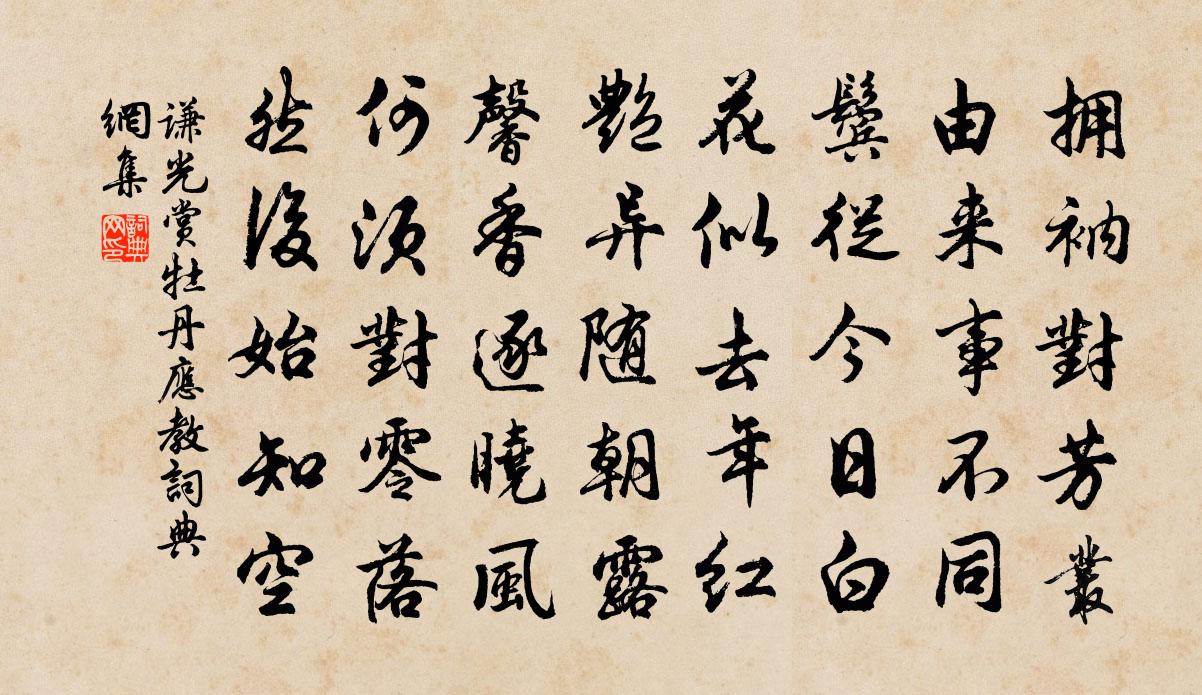 拥衲對芳叢
由来事不同
鬓從今日白
花似去年紅
艷异随朝露
馨香逐曉風
何須對零落
然後始知空
谦光赏牡丹應教詞典
網集
詞典網印